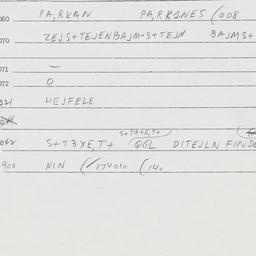 060 PA,RKAN PA,RKSNES (008
070 ZEJS+TEJENBAJM-S+TEJN BAJMS+
071 —
072 0
021 HEJFELE
S+TAXE,T+
042 S+T3XE,T+ QGL DITEJLN FINDE
900 NIN (/174010 (140